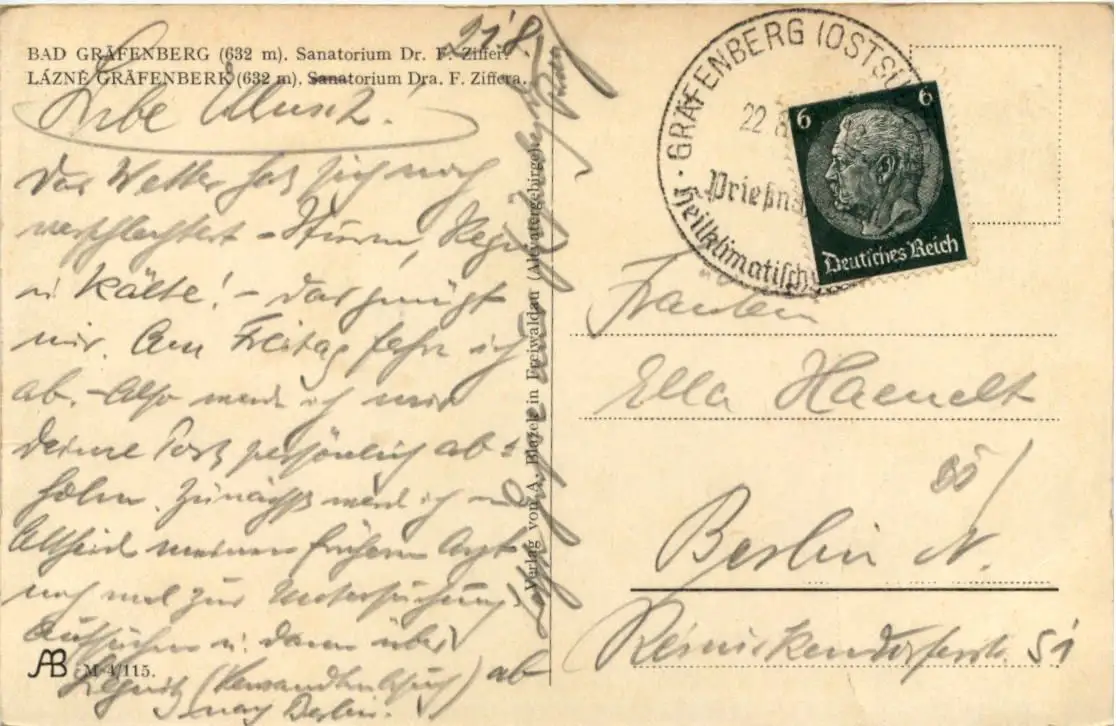 BAD GRÄFENBERG (632 m). Sanatorium Dr. F. Ziffer.
LÁZNĚ GRÄFENBERK (632 m). Sanatorium Dra. F. Ziffera.
21/8.
Liebe
Das Wetter hat sich noch
verschlechtert - Sturm, Regen
u. Kälte! - das genügt
mir. Am Freitag fahre ich
ab. - Also werde ich mir
Deine Post persönlich ab=
holen. Zunächst werde ich
Altheide meinen frühern Arzt
noch mal zur Untersuchung
aufsuchen u. dann über
Liegnitz (Verwandtenbesuch) ab
nach Berlin.
AB M 4/115.
Verlag von A. Blažek in Freiwaldau (Altvatergebirge).
GRÄFENBERG (OSTSU
22 8
Prießn
Heilklimatisch
6 6
Deutsches Reich
Fräulein
Ella Haenelt
Berlin N.
Reinickendorferstr. 51